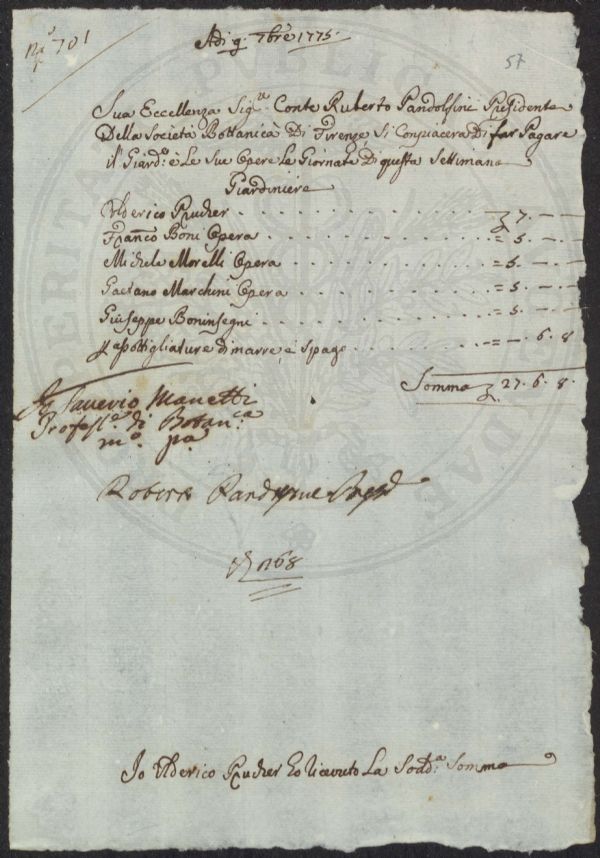 701
Adi 9 7bre 1775.
57
Sua Eccellenza Sig.re Conte Ruberto Pandolfini Presidente
Della Società Bottanica Di Firenze Si Conpiacerà Di far Pagare
il Giard.e è Le Sue Opere Le Giornate Di questa Settimana
Giardiniere
Ulderico Prucher 7. — —
Franco Boni Opera = 5. — —
Michele Morelli Opera = 5. — —
Gaetano Marchini Opera = 5. — —
Giuseppe Boninsegni = 5. — —
di marre, è Spago = — 6. 8
Somma 27. 6. 8.
Saverio Manetti
Profess.e di Botan.ca
m.o p.a
Roberto
168
Io Ulderico Prucher Ho Ricevuto La Sodd.a Somma